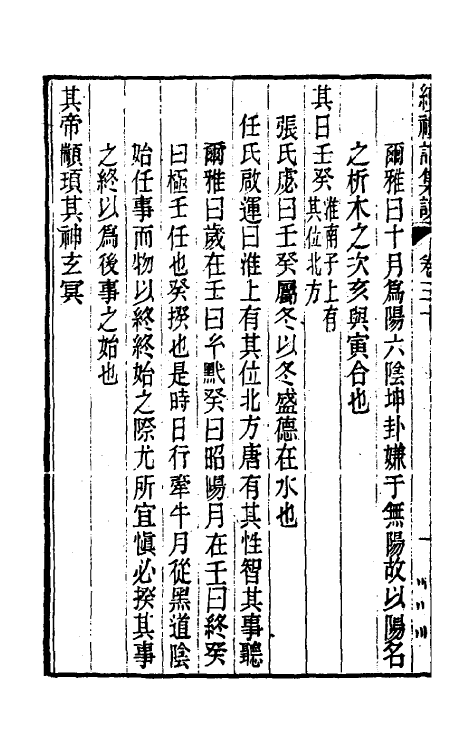 續禮記集說 卷三十
爾雅曰十月為陽六陰坤卦嫌于無陽故以陽名
之析木之次亥與寅合也
其日壬癸淮南子上有其位北方
張氏慮曰壬癸屬冬以冬盛德在水也
任氏啟運曰淮上有其位北方唐有其性智其事聽
爾雅曰歲在壬曰玄黓癸曰昭陽月在壬曰終癸
曰極壬任也癸揆也是時日行牽牛月從黑道陰
始任事而物以終終始之際尤所宜愼必揆其事
之終以爲後事之始也
其帝顓頊其神玄冥